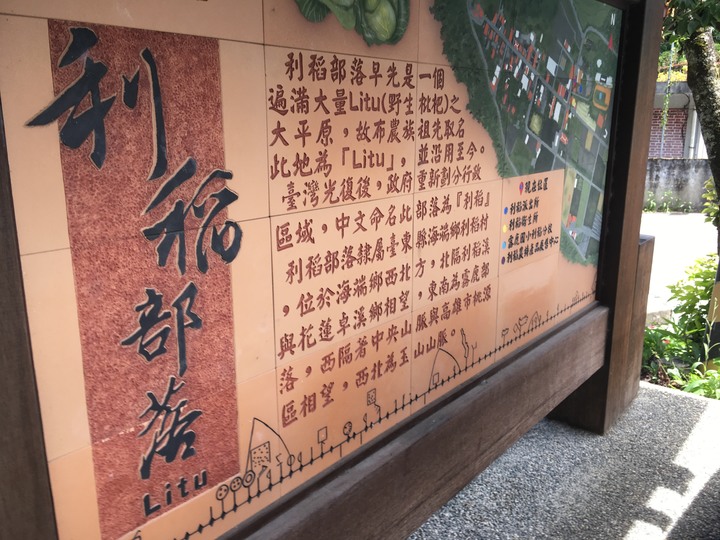 利稻部落
Litu
利稻部落早先是一個
遍滿大量Litu(野生枇杷)之
大平原，故布農族祖先取名
此地為「Litu」，並沿用至今。
臺灣光復後，政府重新劃分行政
區域，中文命名此部落為『利稻』
利稻部落隸屬臺東縣海端鄉利稻村
，位於海端鄉西北方，北臨利稻溪
與花蓮卓溪鄉相望，東南為霧鹿部
落，西隔著中央山脈與高雄市桃源
區相望，西北為玉山山脈。
現在位置
利稻派出所
利稻衛生所
霧鹿國小利稻分校
利稻農特產品展售中心
N